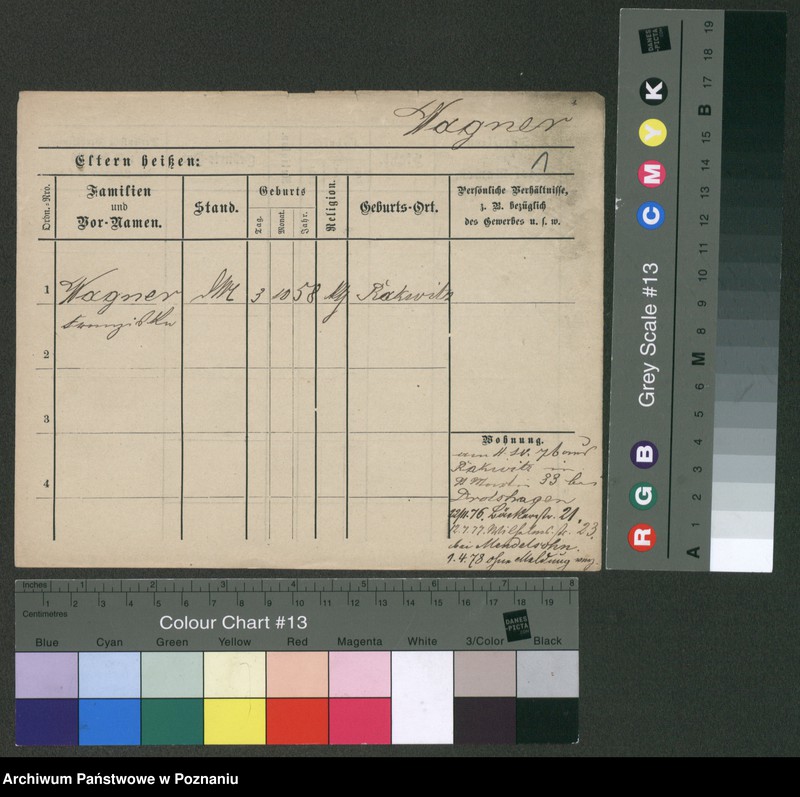 Wagner
Eltern heißen:
Ordn.-Nro.
Familien
und
Vor-Namen.
Stand.
Geburts
Tag.
Monat.
Jahr.
Religion.
Geburts-Ort.
Persönliche Verhältnisse,
z. B. bezüglich
des Gewerbes u. s. w.
1 Wagner 3 10 58 Rakwitz
Franziska
2
3
4
Wohnung.
76
Rakwitz in
33 bei
Drdshagen
76. Bäckerstr. 21.
77. Wilhelmstr. 23
bei Mendelsohn.
1.4.78 ohne Meldung
Inches 1 2 3 4 5 6 7 8
Centimetres 1 2 3 4 5 6 7 8 9 10 11 12 13 14 15 16 17 18 19
Colour Chart #13
DANES
-PICTA
.COM
Blue Cyan Green Yellow Red Magenta White 3/Color Black
Grey Scale #13
R G B C M Y K
DANES
-PICTA
.COM
A 1 2 3 4 5 6 M 8 9 10 11 12 13 14 15 B 17 18 19
Archiwum Państwowe w Poznaniu